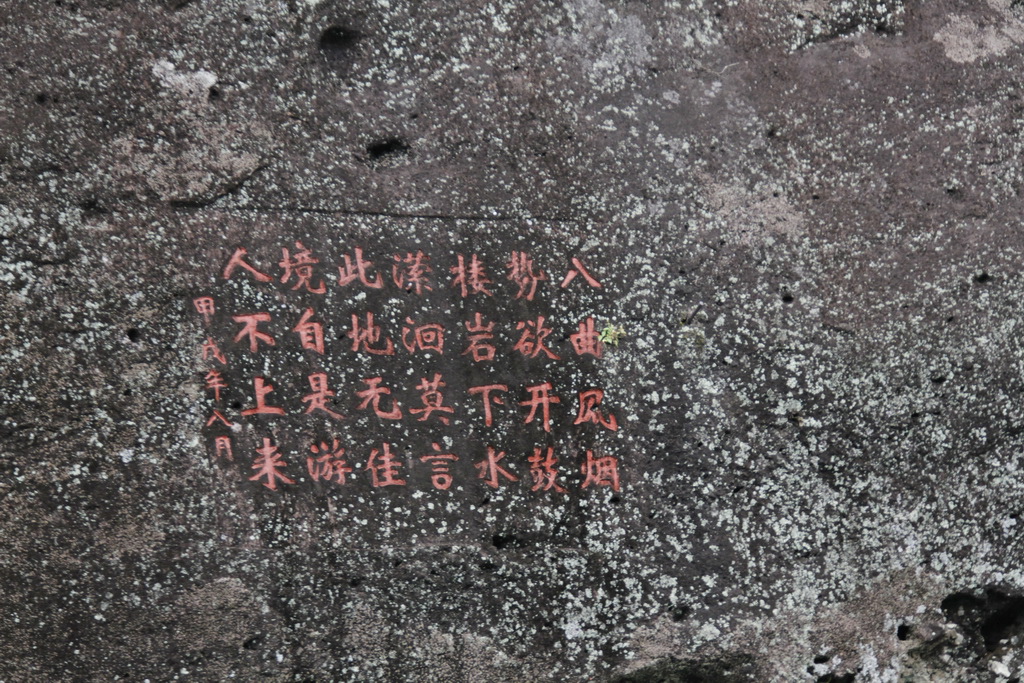 八曲风烟
势欲开鼓
楼岩下水
潆洄莫言
此地无佳
境自是游
人不上来
甲戌年八月